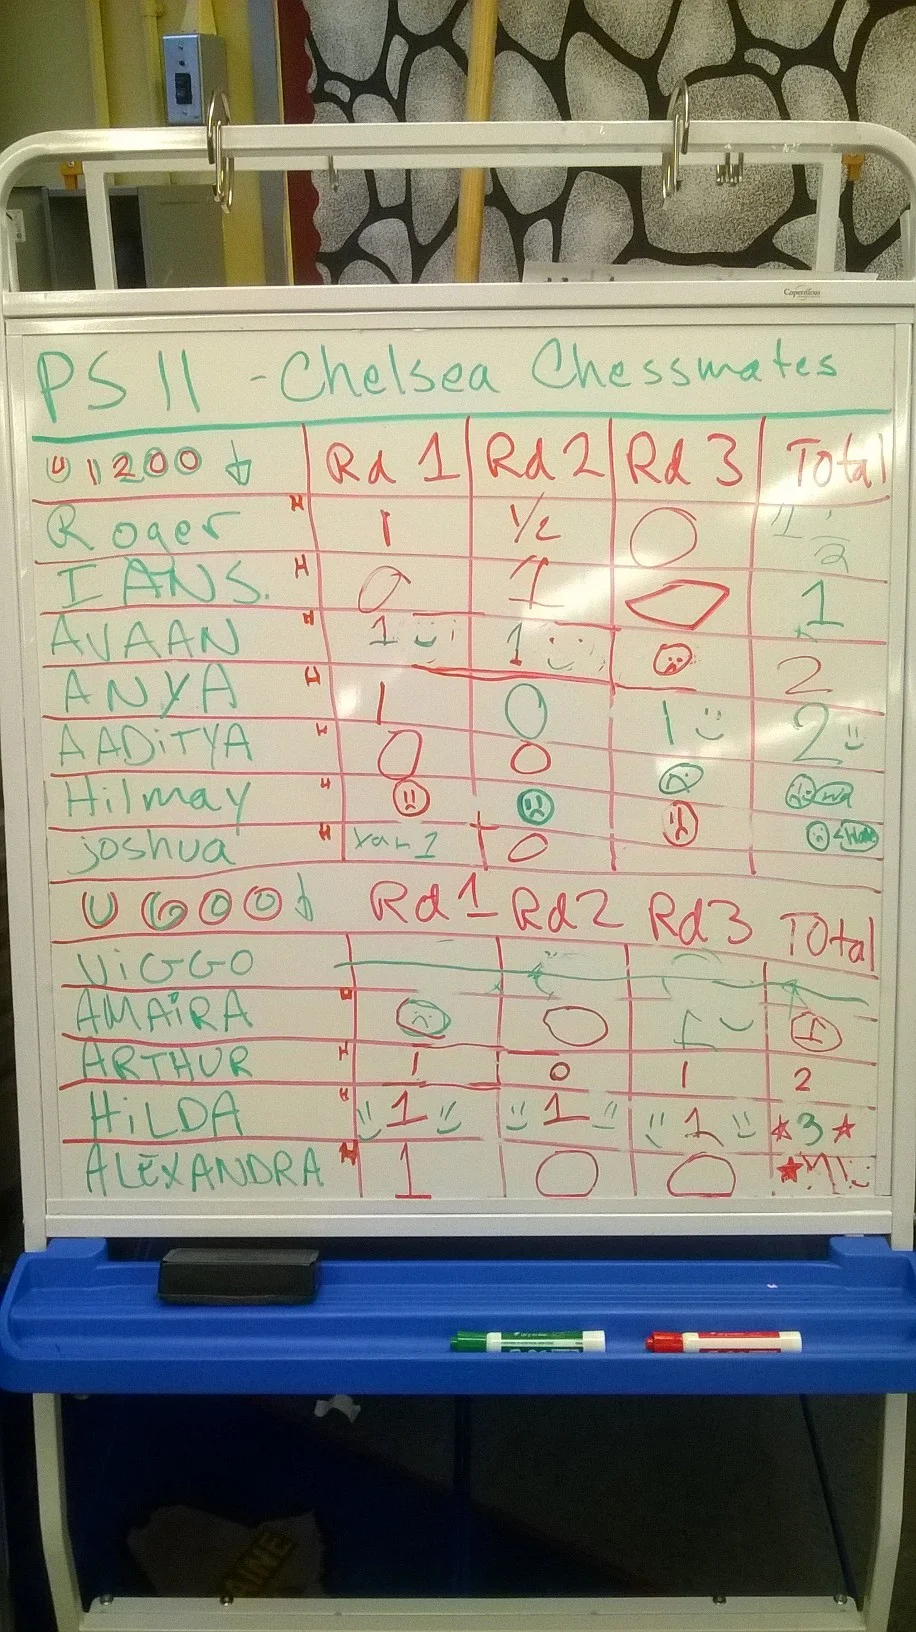 Copernicus
PS 11 - Chelsea Chessmates
U 1200 ↓ Rd 1 Rd 2 Rd 3 Total
Roger H 1 1/2 0 1 1/2
IANS. H 0 1 0 1
AVAAN H 1 1 2
ANYA H 1 0 1 2
AADiTYA H 0 0
Hilmay H
joshua H 1 0
U 600 ↓ Rd 1 Rd 2 Rd 3 Total
ViGGO
AMAiRA H 0 1 1
ARTHUR H 1 0 1 2
HiLDA H 1 1 1 3
ALEXANDRA H 1 0 0
AINE